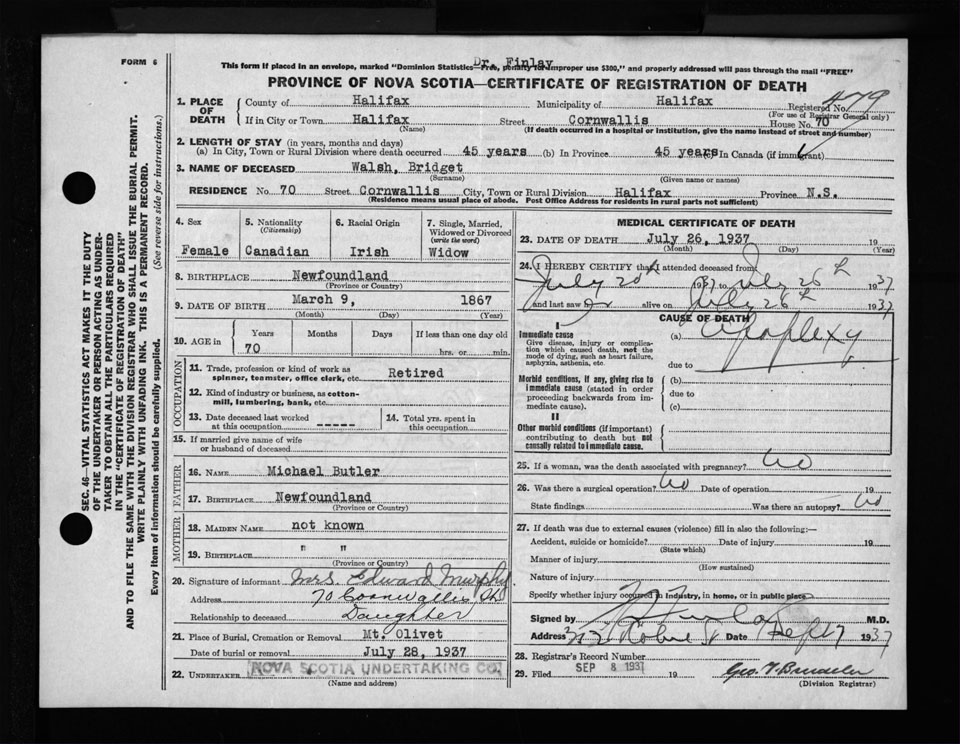 FORM 6
Dr. Finlay
This form if placed in an envelope, marked "Dominion Statistics—Free, penalty for improper use $300," and properly addressed will pass through the mail "FREE"
PROVINCE OF NOVA SCOTIA—CERTIFICATE OF REGISTRATION OF DEATH
1. PLACE OF DEATH
County of Halifax Municipality of Halifax Registered No. 479
(For use of Registrar General only)
If in City or Town Halifax Street Cornwallis House No. 70
(Name) (If death occurred in a hospital or institution, give the name instead of street and number)
2. LENGTH OF STAY (in years, months and days)
(a) In City, Town or Rural Division where death occurred 45 years (b) In Province 45 years (c) In Canada (if immigrant)
3. NAME OF DECEASED Walsh, Bridget
(Surname) (Given name or names)
RESIDENCE No. 70 Street Cornwallis City, Town or Rural Division Halifax Province N.S.
(Residence means usual place of abode. Post Office Address for residents in rural parts not sufficient)
4. Sex Female
5. Nationality (Citizenship) Canadian
6. Racial Origin Irish
7. Single, Married, Widowed or Divorced (write the word) Widow
8. BIRTHPLACE Newfoundland
(Province or Country)
9. DATE OF BIRTH March 9, 1867
(Month) (Day) (Year)
10. AGE in Years Months Days If less than one day old
70 hrs. or min.
OCCUPATION
11. Trade, profession or kind of work as spinner, teamster, office clerk, etc. Retired
12. Kind of industry or business, as cotton-mill, lumbering, bank, etc.
13. Date deceased last worked at this occupation -----
14. Total yrs. spent in this occupation
15. If married give name of wife or husband of deceased
FATHER
16. NAME Michael Butler
17. BIRTHPLACE Newfoundland
(Province or Country)
MOTHER
18. MAIDEN NAME not known
19. BIRTHPLACE " "
(Province or Country)
20. Signature of informant Mrs Edward Murphy
Address 70 Cornwallis St
Relationship to deceased Daughter
21. Place of Burial, Cremation or Removal Mt. Olivet
Date of burial or removal July 28, 1937
22. UNDERTAKER NOVA SCOTIA UNDERTAKING CO.
(Name and address)
MEDICAL CERTIFICATE OF DEATH
23. DATE OF DEATH July 26, 1937 19
(Month) (Day) (Year)
24. I HEREBY CERTIFY that I attended deceased from
July 20th 1937 to July 26th 1937
and last saw alive on July 26th 1937
CAUSE OF DEATH
I
Immediate cause
Give disease, injury or complication which caused death, not the mode of dying, such as heart failure, asphyxia, asthenia, etc.
(a) Apoplexy
due to
Morbid conditions, if any, giving rise to immediate cause (stated in order proceeding backwards from immediate cause).
(b)
due to
(c)
II
Other morbid conditions (if important) contributing to death but not causally related to immediate cause.
25. If a woman, was the death associated with pregnancy? No
26. Was there a surgical operation? No Date of operation 19
State findings Was there an autopsy? No
27. If death was due to external causes (violence) fill in also the following:—
Accident, suicide or homicide? Date of injury 19
(State which)
Manner of injury
(How sustained)
Nature of injury
Specify whether injury occurred in Industry, in home, or in public place
Signed by Finlay M.D.
Address Robie St Date Sept 7 1937
28. Registrar's Record Number
29. Filed SEP 8 1937 19
(Division Registrar)
SEC. 46—VITAL STATISTICS ACT MAKES IT THE DUTY
OF THE UNDERTAKER OR PERSON ACTING AS UNDER-
TAKER TO OBTAIN ALL THE PARTICULARS REQUIRED
IN THE "CERTIFICATE OF REGISTRATION OF DEATH"
AND TO FILE THE SAME WITH THE DIVISION REGISTRAR WHO SHALL ISSUE THE BURIAL PERMIT.
WRITE PLAINLY WITH UNFADING INK. THIS IS A PERMANENT RECORD.
Every item of information should be carefully supplied. (See reverse side for instructions.)